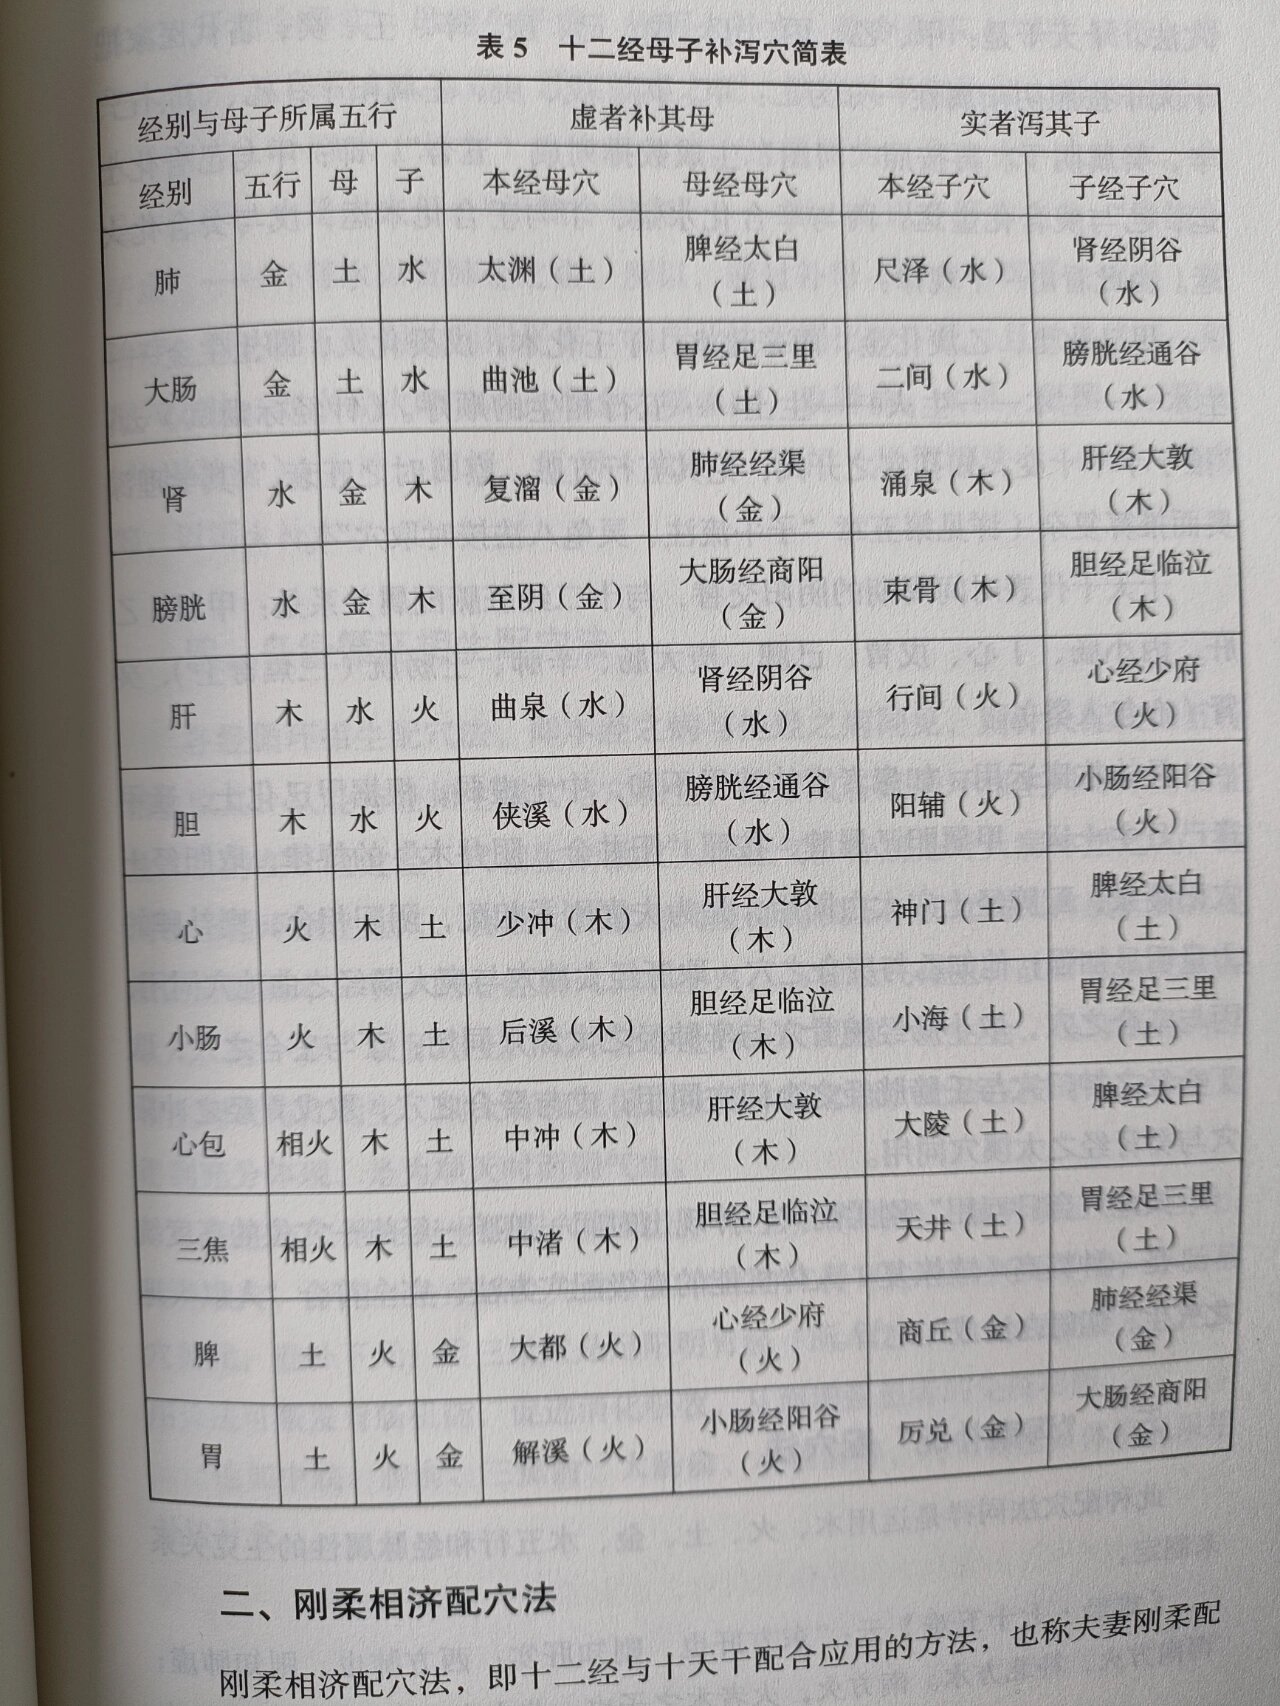 表 5 十二经母子补泻穴简表
经别与母子所属五行 虚者补其母 实者泻其子
经别 五行 母 子 本经母穴 母经母穴 本经子穴 子经子穴
肺 金 土 水 太渊（土） 脾经太白（土） 尺泽（水） 肾经阴谷（水）
大肠 金 土 水 曲池（土） 胃经足三里（土） 二间（水） 膀胱经通谷（水）
肾 水 金 木 复溜（金） 肺经经渠（金） 涌泉（木） 肝经大敦（木）
膀胱 水 金 木 至阴（金） 大肠经商阳（金） 束骨（木） 胆经足临泣（木）
肝 木 水 火 曲泉（水） 肾经阴谷（水） 行间（火） 心经少府（火）
胆 木 水 火 侠溪（水） 膀胱经通谷（水） 阳辅（火） 小肠经阳谷（火）
心 火 木 土 少冲（木） 肝经大敦（木） 神门（土） 脾经太白（土）
小肠 火 木 土 后溪（木） 胆经足临泣（木） 小海（土） 胃经足三里（土）
心包 相火 木 土 中冲（木） 肝经大敦（木） 大陵（土） 脾经太白（土）
三焦 相火 木 土 中渚（木） 胆经足临泣（木） 天井（土） 胃经足三里（土）
脾 土 火 金 大都（火） 心经少府（火） 商丘（金） 肺经经渠（金）
胃 土 火 金 解溪（火） 小肠经阳谷（火） 厉兑（金） 大肠经商阳（金）
二、刚柔相济配穴法
刚柔相济配穴法，即十二经与十天干配合应用的方法，也称夫妻刚柔配